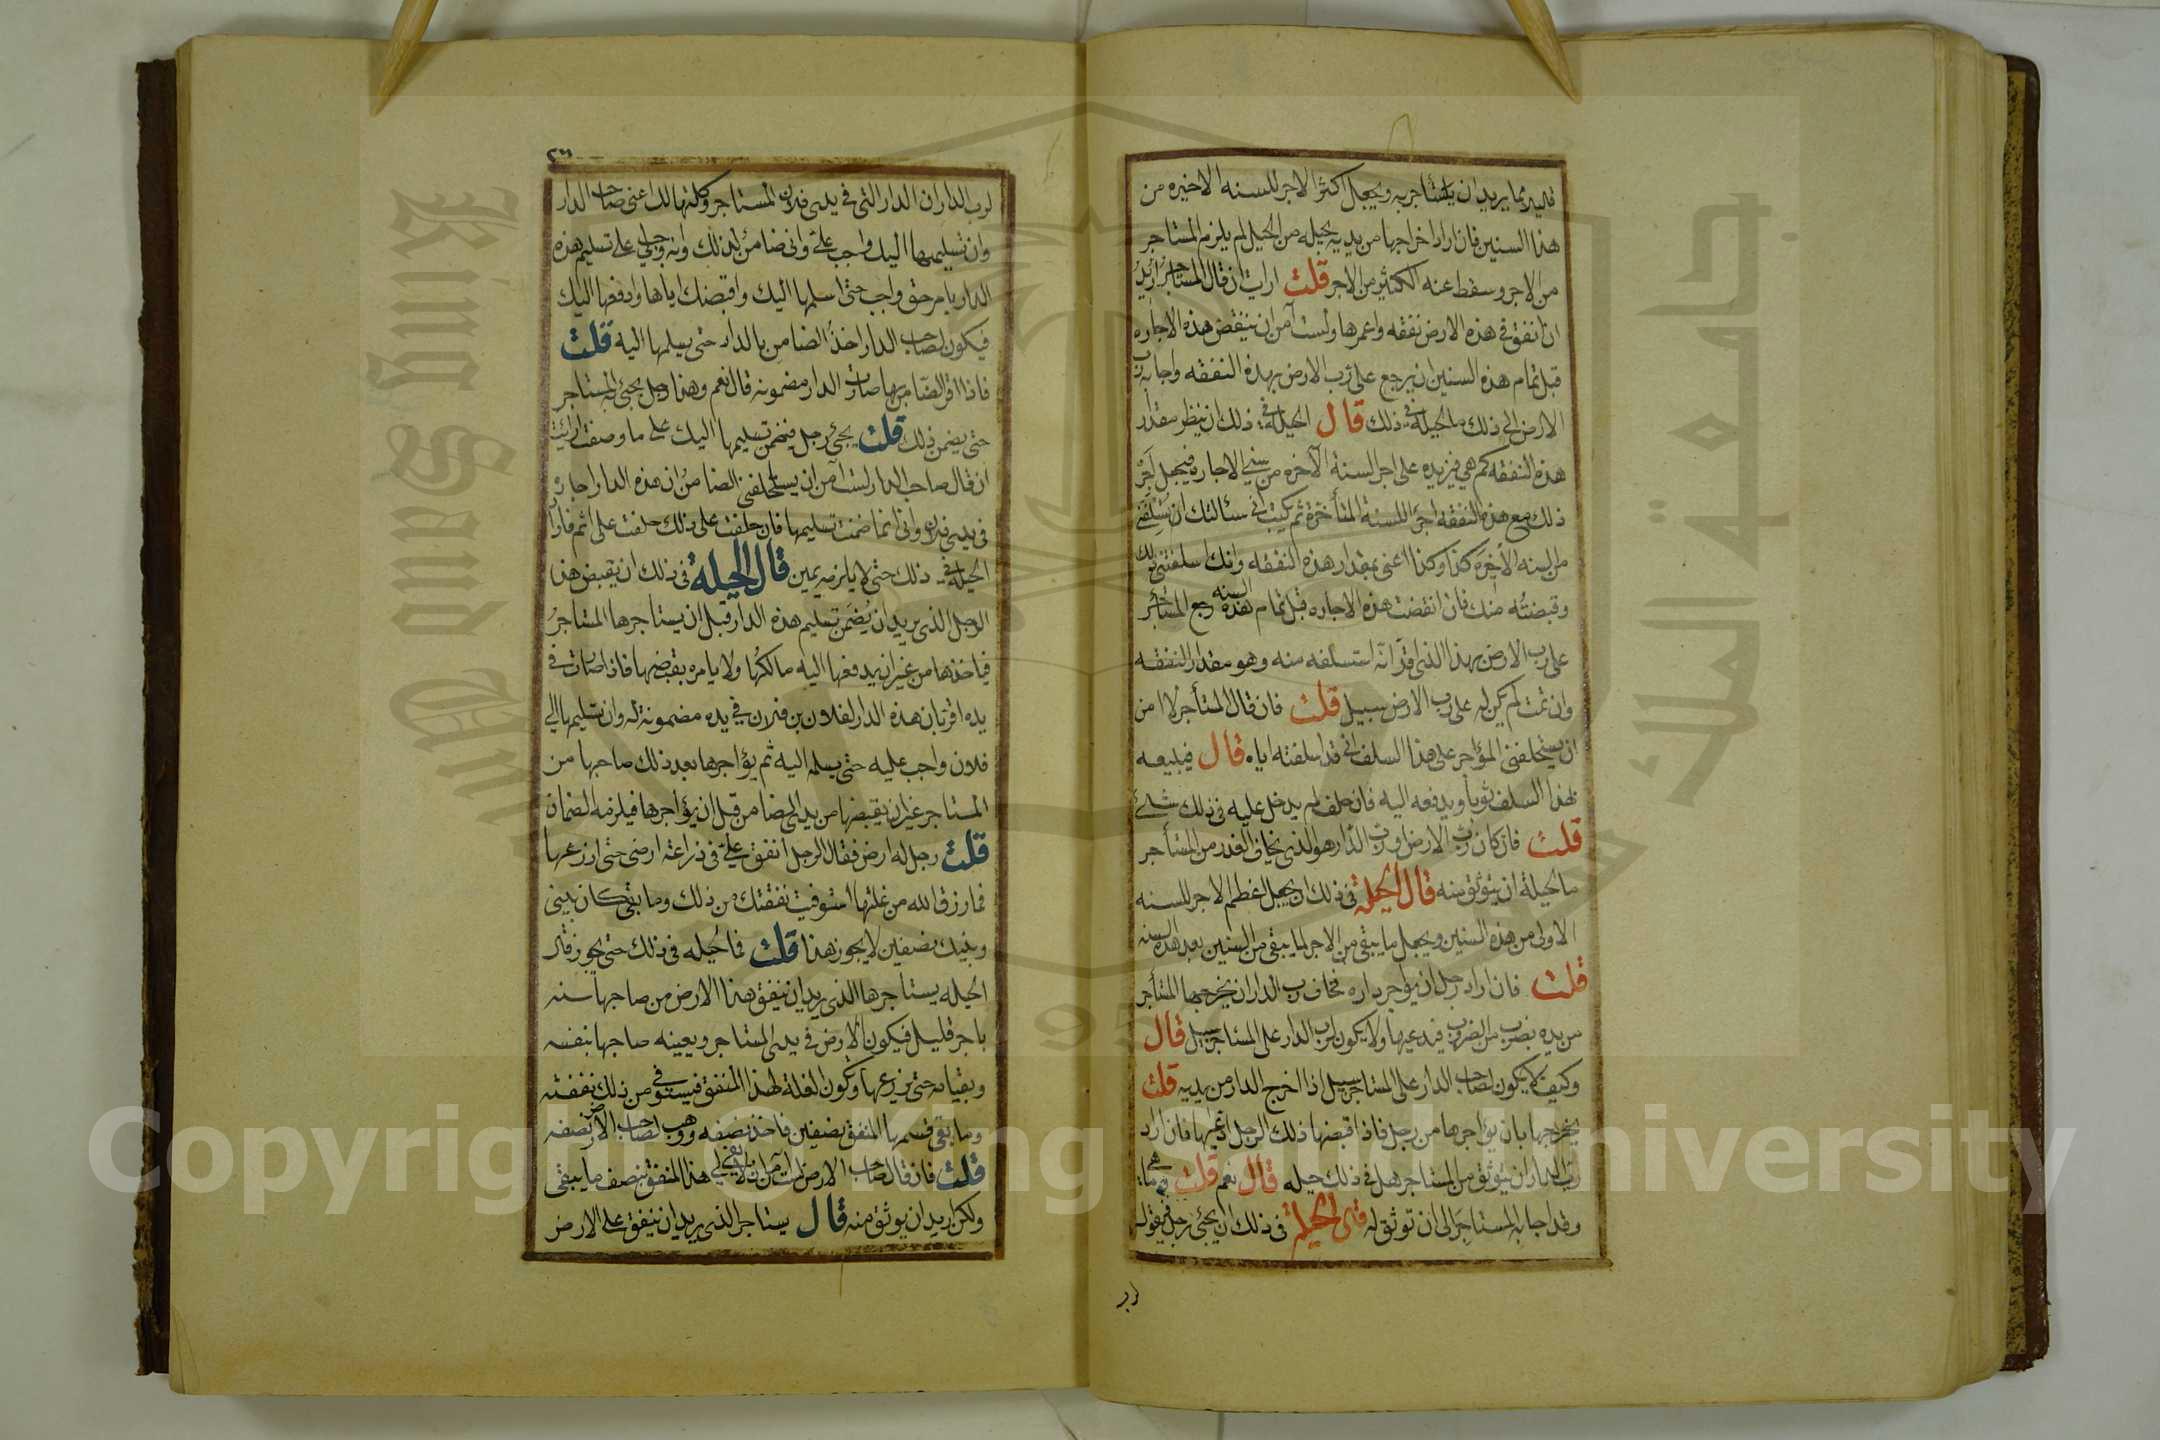 قليل مما يريد ان يستأجر به ويجعل اكثر الاجر للسنه الاخيره من
هذا السنين فان اراد اخراجها من يديه بحيله من الحيل لم يلزم المستاجر
من الاجر وسقط عنه الكثير من الاجر قلت ارايت ان قال المستاجر اريد
ان انفق في هذه الارض نفقه واعمرها ولست آمن ان ينتقض هذه الاجاره
قبل تمام هذه السنين ان يرجع على رب الارض بهذه النفقه واجابه رب
الارض الى ذلك ما الحيلة في ذلك قال الحيلة في ذلك ان ينظر مقدار
هذه النفقه كم هي فيزيده على اجر السنة الآخره من سني الاجاره فيجعل اجر
ذلك مع هذه النفقه اجر للسنة المتأخرة ثم يكتب اني سئالتك ان تسلفني
من السنه الاخره كذا وكذا اعني بمقدار هذه النفقه وانك اسلفتني ذلك
وقبضته منك فان انقضت هذه الاجاره قبل تمام هذه السنه رجع المستأجر
على رب الارض بهذا الذي اقر انه استسلفه منه وهو مقدار النفقه
وان تمت لم يكن له على رب الارض سبيل قلت فان قال المستأجر لا امن
ان يستحلفني المؤاجر على هذا السلف اني قد اسلفته اياه قال فيبيعه
بهذا السلف ثوبا ويدفعه اليه فان حلف لم يدخل عليه في ذلك شئ
قلت فان كان رب الارض او رب الدار هو الذي يخاف الغدر من المستأجر
ما الحيلة ان يتوثق منه قال الحيلة في ذلك ان يجعل اعظم الاجر للسنه
الاولى من هذه السنين ويجعل ما يبقى من الاجر لما يبقى من السنين بعد هذه السنه
قلت فان اراد رجل ان يؤاجر داره فخاف رب الدار ان يخرجها المستأجر
من يده بضرب من الضروب فيدعيها ولا يكون لرب الدار على المستاجر سبيل قال
وكيف لا يكون لصاحب الدار على المستاجر سبيل اذا اخرج الدار من يديه قلت
يخرجها بان يؤاجرها من رجل فاذا قبضها ذلك الرجل ادعيها فان اراد
رب الدار ان يتوثق من المستاجر هل في ذلك حيله قال نعم قلت ما هي
وقد اجابه المستاجر الى ان توثق له قال الحيلة في ذلك ان يجئ رجل فيقول
لرب
لرب الدار ان الدار التي في يدي فلان المستاجر وكلتها لك اعني صاحب الدار
وان تسليمها اليك واجب علي واني ضامن لذلك وانه وجب لي على تسليم هذه
الدار بامر حق واجب حتى اسلمها اليك واقبضك اياها وادفعها اليك
فيكون لصاحب الدار اخذ الضامن بالدار حتى يسلمها اليه قلت
فاذا اقر الضامن بها صارت الدار مضمونه قال نعم وهذا رجل يجئ به المستاجر
حتى يضمن ذلك قلت يجئ رجل فيضمن تسليمها اليك على ما وصفت ارائت
ان قال صاحب الدار لست آمن ان يستحلفني الضامن ان هذه الدار اجاره
في يدي فلان واني انما ضمنت تسليمها فان حلفت على ذلك حلفت على اثم
الحيلة في ذلك حتى لا يلزمه يمين قال الحيلة في ذلك ان يقبض هذا
الرجل الذي يريد ان يضمن تسليم هذه الدار قبل ان يستاجرها المستاجر
فياخذها من غير ان يدفعها اليه مالكها ولا يامره بقبضها فاذا صارت في
يده اقر بان هذه الدار لفلان بن فلان في يده مضمونة له وان تسليمها الى
فلان واجب عليه حتى يسلمه اليه ثم يؤاجرها بعد ذلك صاحبها من
المستاجر غير ان يقبضها من يدي الضامن قبل ان يؤاجرها فيلزمه الضمان
قلت رجل له ارض فقال لرجل انفق علي في زراعة ارضي حتى ازرعها
فما رزق الله من غلتها استوفيت نفقتك من ذلك وما بقي كان بيني
وبينك نصفين لا يجوز هذا قلت فما الحيله في ذلك حتى يجوز قال
الحيله يستاجرها الذي يريد ان ينفق هذا الارض من صاحبها سنه
باجر قليل فيكون الارض في يدي المستاجر ويعينه صاحبها بنفسه
وبقيامه حتى يزرعها وتكون الغلة لهذا المنفق فيستوفي من ذلك نفقته
وما بقي قسمها المنفق نصفين فاخذ نصفه ووهب لصاحب الارض نصفه
قلت فان قال صاحب الارض لست آمن ان لا يفي لي هذا المنفق بنصف ما يبقى
ولكن اريد ان يوثق منه قال يستاجر الذي يريد ان ينفق على الارض
King Saud University
جامعة الملك سعود
1957
Copyright © King Saud University